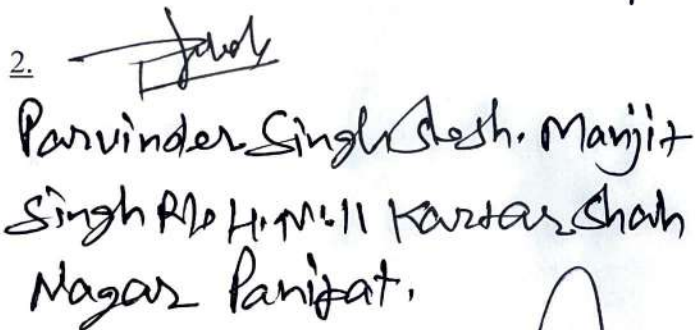 2.
Parvinder Singh S/o Sh. Manjit
Singh R/o H.N. 11 Kartar Shah
Nagar Panipat.